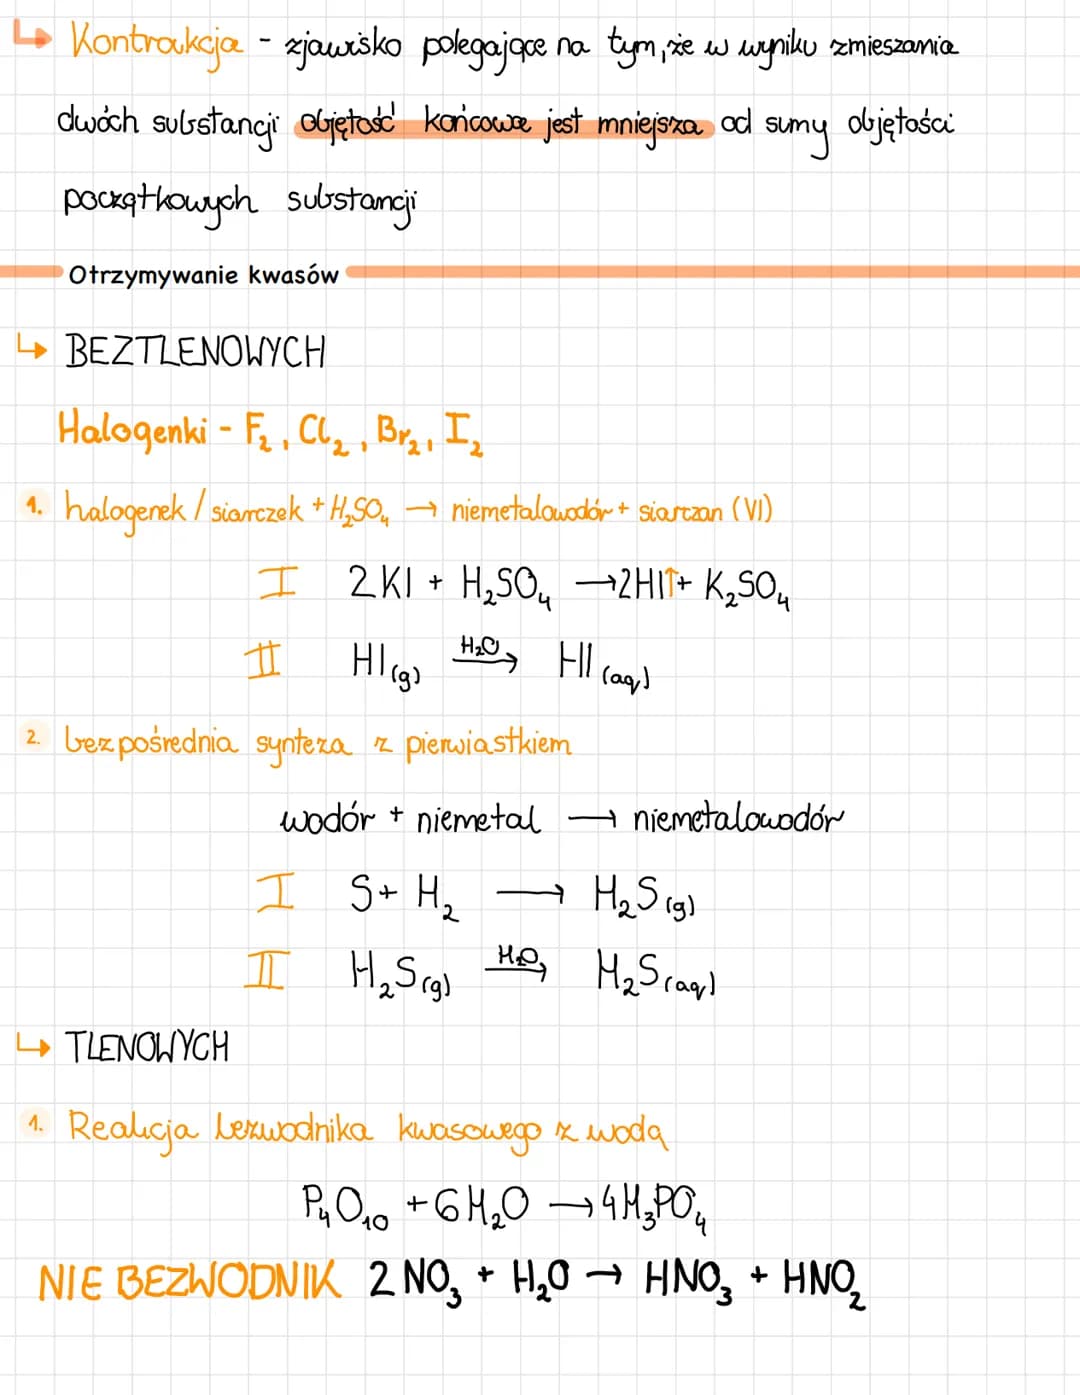 ↳ Kontrakcja - zjawisko polegające na tym, że w wyniku zmieszania
dwóch substancji objętość końcowa jest mniejsza od sumy objętości
początkowych substancji
Otrzymywanie kwasów
↳ BEZTLENOWYCH
Halogenki - F₂, Cl₂, Br₂, I₂
1. halogenek / siarczek + H₂SO₄ → niemetalowodór + siarczan (VI)
I 2KI + H₂SO₄ → 2HI↑ + K₂SO₄
II HI(g) H₂O→ HI(aq)
2. bezpośrednia synteza z pierwiastkiem
wodór + niemetal → niemetalowodór
I S + H₂ → H₂S(g)
II H₂S(g) H₂O→ H₂S(aq)
↳ TLENOWYCH
1. Reakcja bezwodnika kwasowego z wodą
P₄O₁₀ + 6H₂O → 4H₃PO₄
NIE BEZWODNIK 2NO₃ + H₂O → HNO₃ + HNO₂